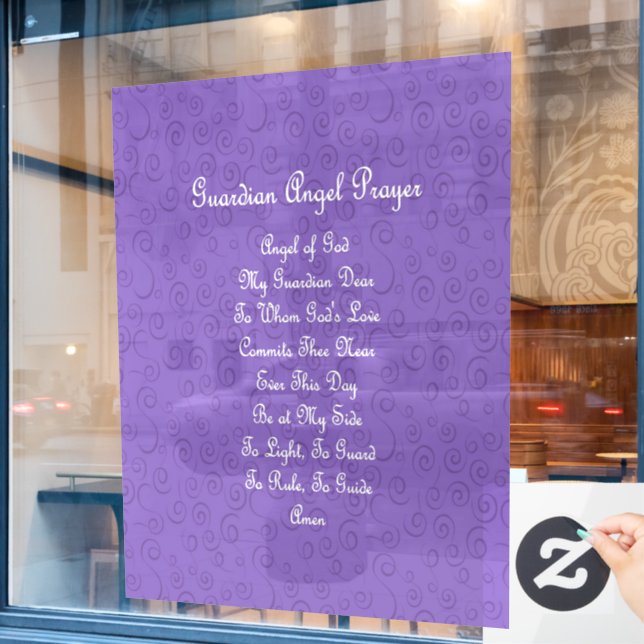 Guardian Angel Prayer
Angel of God
My Guardian Dear
To Whom God's Love
Commits Thee Near
Ever This Day
Be at My Side
To Light, To Guard
To Rule, To Guide
Amen
Z